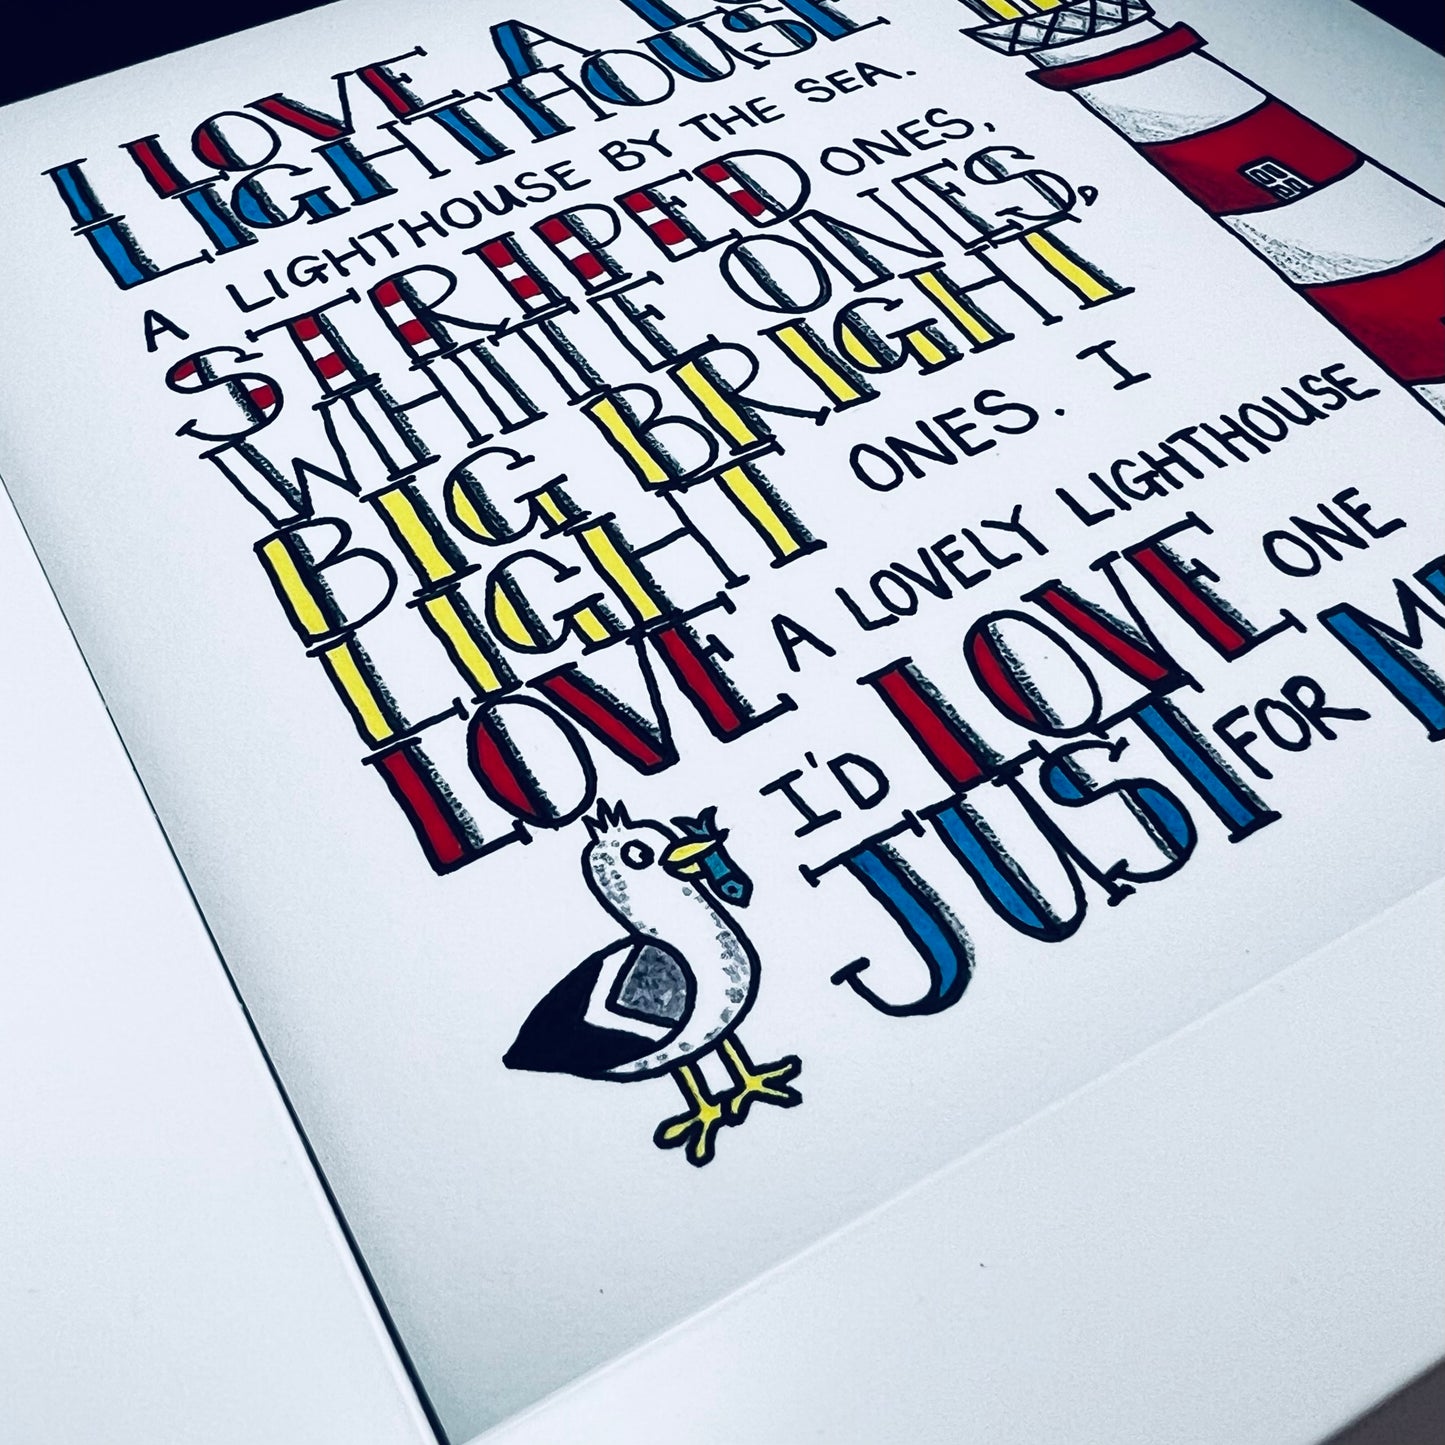 I LOVE A
LIGHTHOUSE
A LIGHTHOUSE BY THE SEA.
STRIPED ONES,
WHITE ONES,
BIG BRIGHT
LIGHT ONES. I
LOVE A LOVELY LIGHTHOUSE
I'D LOVE ONE
JUST FOR